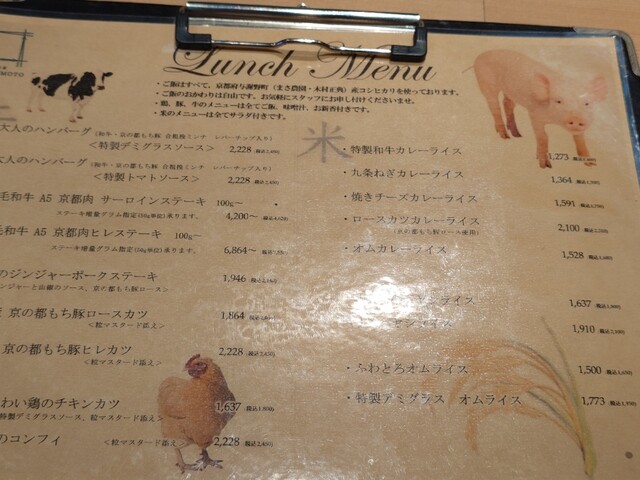 Lunch Menu
・ご飯はすべて、京都府与謝野町（まさ農園・木村正典）産コシヒカリを使っております。
・ご飯のおかわりは自由です。お気軽にスタッフにお申し付けくださいませ。
・鶏、豚、牛のメニューは全てご飯、味噌汁、お新香付きです。
・米のメニューは全てサラダ付きです。
大人のハンバーグ（和牛・京の都もち豚 合挽挽ミンチ レバーチップ入り）
＜特製デミグラスソース＞ 2,228
大人のハンバーグ（和牛・京の都もち豚 合挽挽ミンチ レバーチップ入り）
＜特製トマトソース＞ 2,228
毛和牛 A5 京都肉 サーロインステーキ 100g～
ステーキ増量グラム指定(50g単位)承ります。 4,200～
毛和牛 A5 京都肉ヒレステーキ 100g～
ステーキ増量グラム指定(50g単位)承ります。 6,864～
のジンジャーポークステーキ 1,946
京の都もち豚ロースカツ 1,864
＜粒マスタード添え＞
京の都もち豚ヒレカツ 2,228
＜粒マスタード添え＞
わい鶏のチキンカツ 1,637
特製デミグラスソース、粒マスタード添え＞
のコンフィ ＜粒マスタード添え＞ 2,228
米
・特製和牛カレーライス 1,273
・九条ねぎカレーライス 1,364
・焼きチーズカレーライス 1,591
・ロースカツカレーライス 2,100
（京の都もち豚ロース使用）
・オムカレーライス 1,528
ライス 1,637
ライス 1,910
・ふわとろオムライス 1,500
・特製デミグラス オムライス 1,773